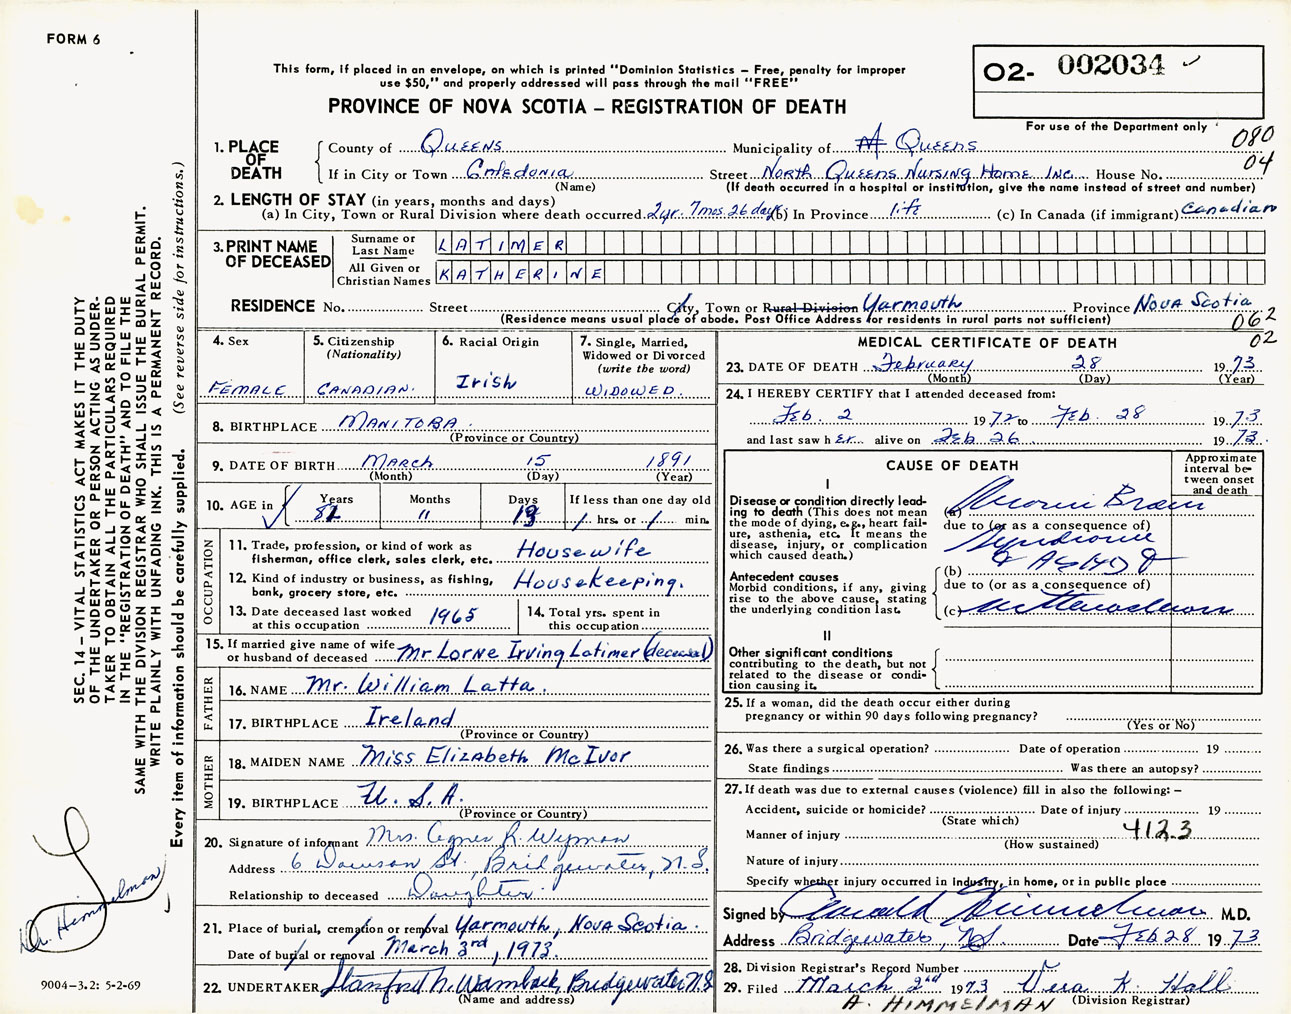 FORM 6
This form, if placed in an envelope, on which is printed "Dominion Statistics – Free, penalty for improper
use $50," and properly addressed will pass through the mail "FREE"
PROVINCE OF NOVA SCOTIA – REGISTRATION OF DEATH
02- 002034
For use of the Department only
080
04
1. PLACE OF DEATH
County of Queens Municipality of Queens
If in City or Town Caledonia Street North Queens Nursing Home Inc. House No.
(Name) (If death occurred in a hospital or institution, give the name instead of street and number)
2. LENGTH OF STAY (in years, months and days)
(a) In City, Town or Rural Division where death occurred 2 yr. 7 mos. 26 days (b) In Province life (c) In Canada (if immigrant) Canadian
3. PRINT NAME OF DECEASED
Surname or Last Name LATIMER
All Given or Christian Names KATHERINE
RESIDENCE No. Street City, Town or Rural Division Yarmouth Province Nova Scotia
(Residence means usual place of abode. Post Office Address for residents in rural parts not sufficient)
062
02
4. Sex
FEMALE
5. Citizenship
(Nationality)
CANADIAN.
6. Racial Origin
Irish
7. Single, Married,
Widowed or Divorced
(write the word)
WIDOWED.
8. BIRTHPLACE MANITOBA.
(Province or Country)
9. DATE OF BIRTH March 15 1891
(Month) (Day) (Year)
10. AGE in
Years Months Days If less than one day old
11 hrs. or min.
OCCUPATION
11. Trade, profession, or kind of work as
fisherman, office clerk, sales clerk, etc. Housewife
12. Kind of industry or business, as fishing,
bank, grocery store, etc. Housekeeping.
13. Date deceased last worked
at this occupation 1965
14. Total yrs. spent in
this occupation
15. If married give name of wife
or husband of deceased Mr Lorne Irving Latimer (deceased)
FATHER
16. NAME Mr. William Latta.
17. BIRTHPLACE Ireland
(Province or Country)
MOTHER
18. MAIDEN NAME Miss Elizabeth McIvor
19. BIRTHPLACE U.S.A.
(Province or Country)
20. Signature of informant Mrs. Agnes R. Wyman
Address 6 Dawson St., Bridgewater, N.S.
Relationship to deceased Daughter.
21. Place of burial, cremation or removal Yarmouth, Nova Scotia.
Date of burial or removal March 3rd, 1973.
22. UNDERTAKER Bridgewater N.S
(Name and address)
MEDICAL CERTIFICATE OF DEATH
23. DATE OF DEATH February 28 1973
(Month) (Day) (Year)
24. I HEREBY CERTIFY that I attended deceased from:
Feb. 2 1972 to Feb. 28 1973
and last saw her alive on Feb 26 1973.
CAUSE OF DEATH
Approximate
interval be-
tween onset
and death
I
Disease or condition directly lead-
ing to death (This does not mean
the mode of dying, e.g., heart fail-
ure, asthenia, etc. It means the
disease, injury, or complication
which caused death.)
(a) Chronic Brain
due to (or as a consequence of)
Syndrome
Antecedent causes
Morbid conditions, if any, giving
rise to the above cause, stating
the underlying condition last.
(b) ASHD
due to (or as a consequence of)
(c)
II
Other significant conditions
contributing to the death, but not
related to the disease or condi-
tion causing it.
25. If a woman, did the death occur either during
pregnancy or within 90 days following pregnancy?
(Yes or No)
26. Was there a surgical operation? Date of operation 19
State findings Was there an autopsy?
27. If death was due to external causes (violence) fill in also the following: –
Accident, suicide or homicide? Date of injury 19
(State which)
412.3
Manner of injury
(How sustained)
Nature of injury
Specify whether injury occurred in industry, in home, or in public place
Signed by Himmelman M.D.
Address Bridgewater, N.S. Date Feb 28 1973
28. Division Registrar's Record Number
29. Filed March 2nd 1973 Vera K. Hall
(Division Registrar)
A. HIMMELMAN
SEC. 14 – VITAL STATISTICS ACT MAKES IT THE DUTY
OF THE UNDERTAKER OR PERSON ACTING AS UNDER-
TAKER TO OBTAIN ALL THE PARTICULARS REQUIRED
IN THE "REGISTRATION OF DEATH" AND TO FILE THE
SAME WITH THE DIVISION REGISTRAR WHO SHALL ISSUE THE BURIAL PERMIT.
WRITE PLAINLY WITH UNFADING INK. THIS IS A PERMANENT RECORD.
Every item of information should be carefully supplied. (See reverse side for instructions.)
Dr. Himmelman
9004-3.2: 5-2-69